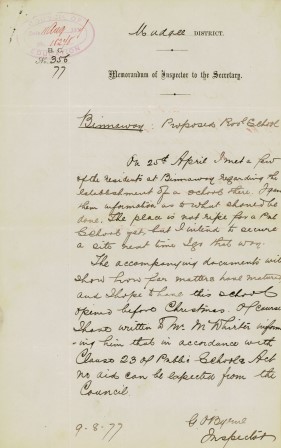 Mudgee DISTRICT.
B. C.
No. 356
77
Memorandum of Inspector to the Secretary.
Binnaway: Proposed Prov'l School
On 25th April I met a few
of the residents at Binnaway regarding the
establishment of a school there. I gave
them information as to what should be
done. The place is not ripe for a Pub
School yet, but I intend to secure
a site next time I go that way.
The accompanying documents will
show how far matters have matured
and I hope to have this school
opened before Christmas. Of course
I have written to Mr. McWhirter inform-
ing him that in accordance with
Clause 23 of Public Schools Act
no aid can be expected from the
Council
G O'Byrne
Inspector
9-8-77